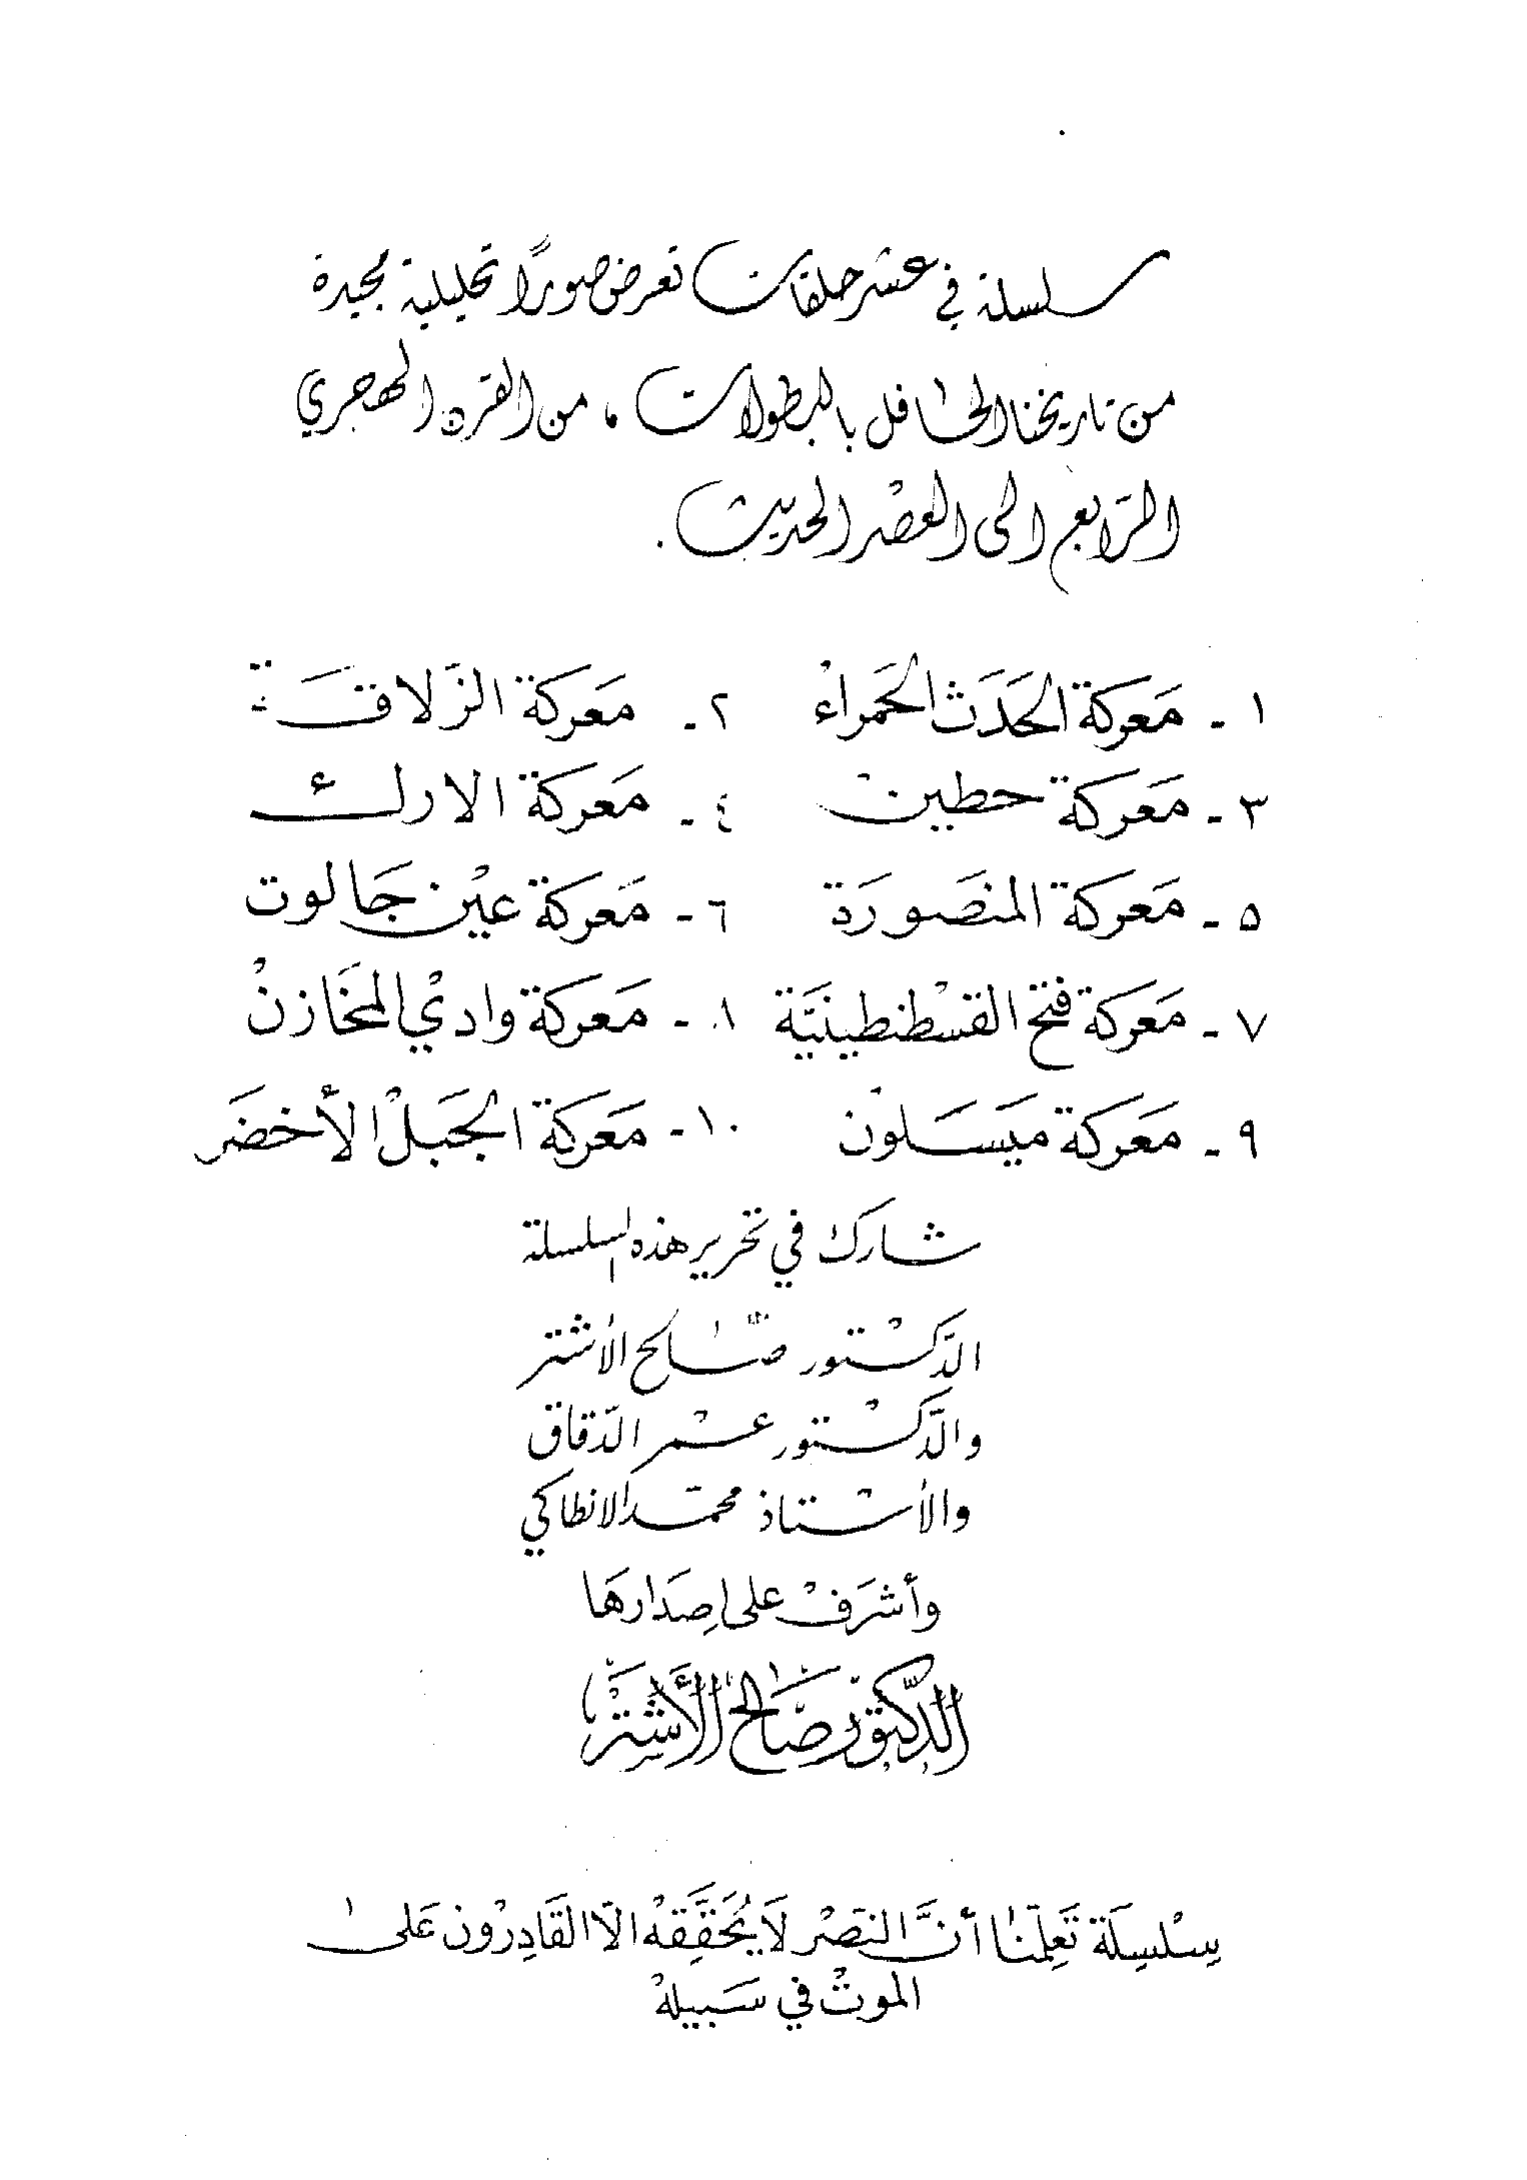 سلسلة في عشر حلقات تعرض صورًا تحليلية مجيدة
من تاريخنا الحافل بالبطولات ، من القرن الهجري
الرّابع الى العصْر الحديث .
١ - مَعركة الحَدَث الحَمراءْ ٢ - مَعركة الزّلاقَة
٣ - مَعركة حطينْ ٤ - مَعركة الارك
٥ - مَعركة المنصَورَة ٦ - مَعركة عيْن جَالوت
٧ - مَعركة فتح القسْطنطينيَّة ٨ - مَعركة واديْ المخَازنْ
٩ - مَعركة ميَسَلونْ ١٠ - مَعركة الجَبلْ الأخضَر
شارك في تحرير هذه السلسلة
الدّكتْور صَالح الأشتر
والدّكتْور عمْر الدّقاق
والأستْاذ محمّد الانطاكي
وأشرَفْ على اِصدَارهَا
الدّكتوْر صَالح الأَشتَرْ
سِلْسِلَة تَعلِّمنَا أنَّ النصَرْ لَا يُحَقَّقِهْ الّا القَادِرْون عَلى
الموتْ في سَبيلهْ